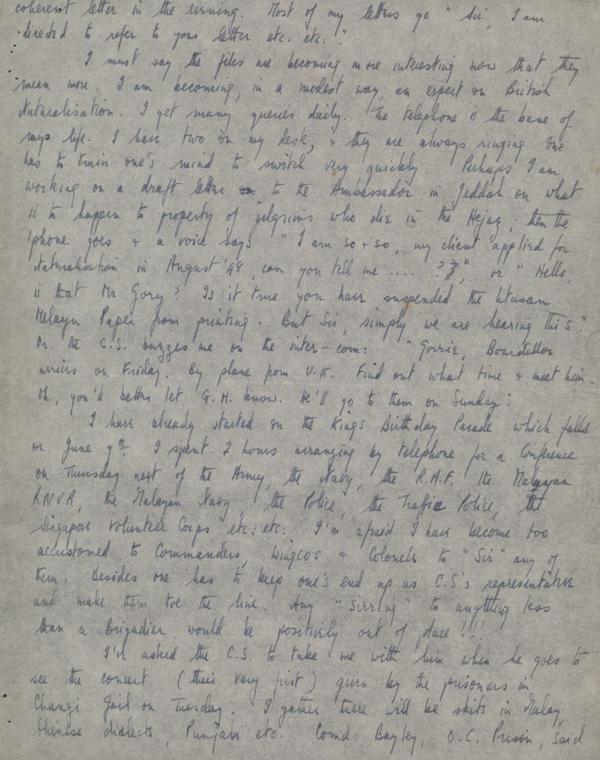 coherent letter in the evening. Most of my letters go "Sir, I am
directed to refer to your letter etc. etc."
I must say the files are becoming more interesting now that they
mean more. I am becoming, in a modest way, an expert on British
Naturalisation. I get many queries daily. The telephone is the bane of
my life. I have two on my desk, & they are always ringing. One
has to train one's mind to switch very quickly. Perhaps I am
working on a draft letter to the Ambassador in Jeddah on what
is to happen to property of pilgrims who die in the Hejaz; then the
'phone goes & a voice says "I am so & so, my client applied for
Naturalisation in August '48, can you tell me .... ??", or "Hello,
is that Mr Gory? Is it true you have suspended the Utusan
Melayu Paper from printing. But Sir, simply we are hearing this."
Or the C.S. buzzes me on the inter-com: "Gorrie, Bourdillon
arrives on Friday. By plane from U.K. Find out what time & meet him.
Oh, you'd better let G.H. know. He'll go to them on Sunday".
I have already started on the King's Birthday Parade which falls
on June 9th. I spent 2 hours arranging by telephone for a Conference
on Thursday next of the Army, the Navy, the R.A.F. the Malayan
RNVR, the Malayan Navy, the Police, the Traffic Police, the
Singapore Volunteer Corps etc: etc: I'm afraid I have become too
accustomed to Commanders, Wingcos & Colonels to "Sir" any of
them. Besides one has to keep one's end up as C.S's representative
and make them toe the line. Any "Sirring" to anything less
than a Brigadier would be positively out of place!!!
I'd asked the C.S. to take me with him when he goes to
see the concert (their very first) given by the prisoners in
Changi Gaol on Tuesday. I gather there will be skits in Malay,
Chinese dialects, Punjabi etc. Comd: Bayley, O.C. Prison, said